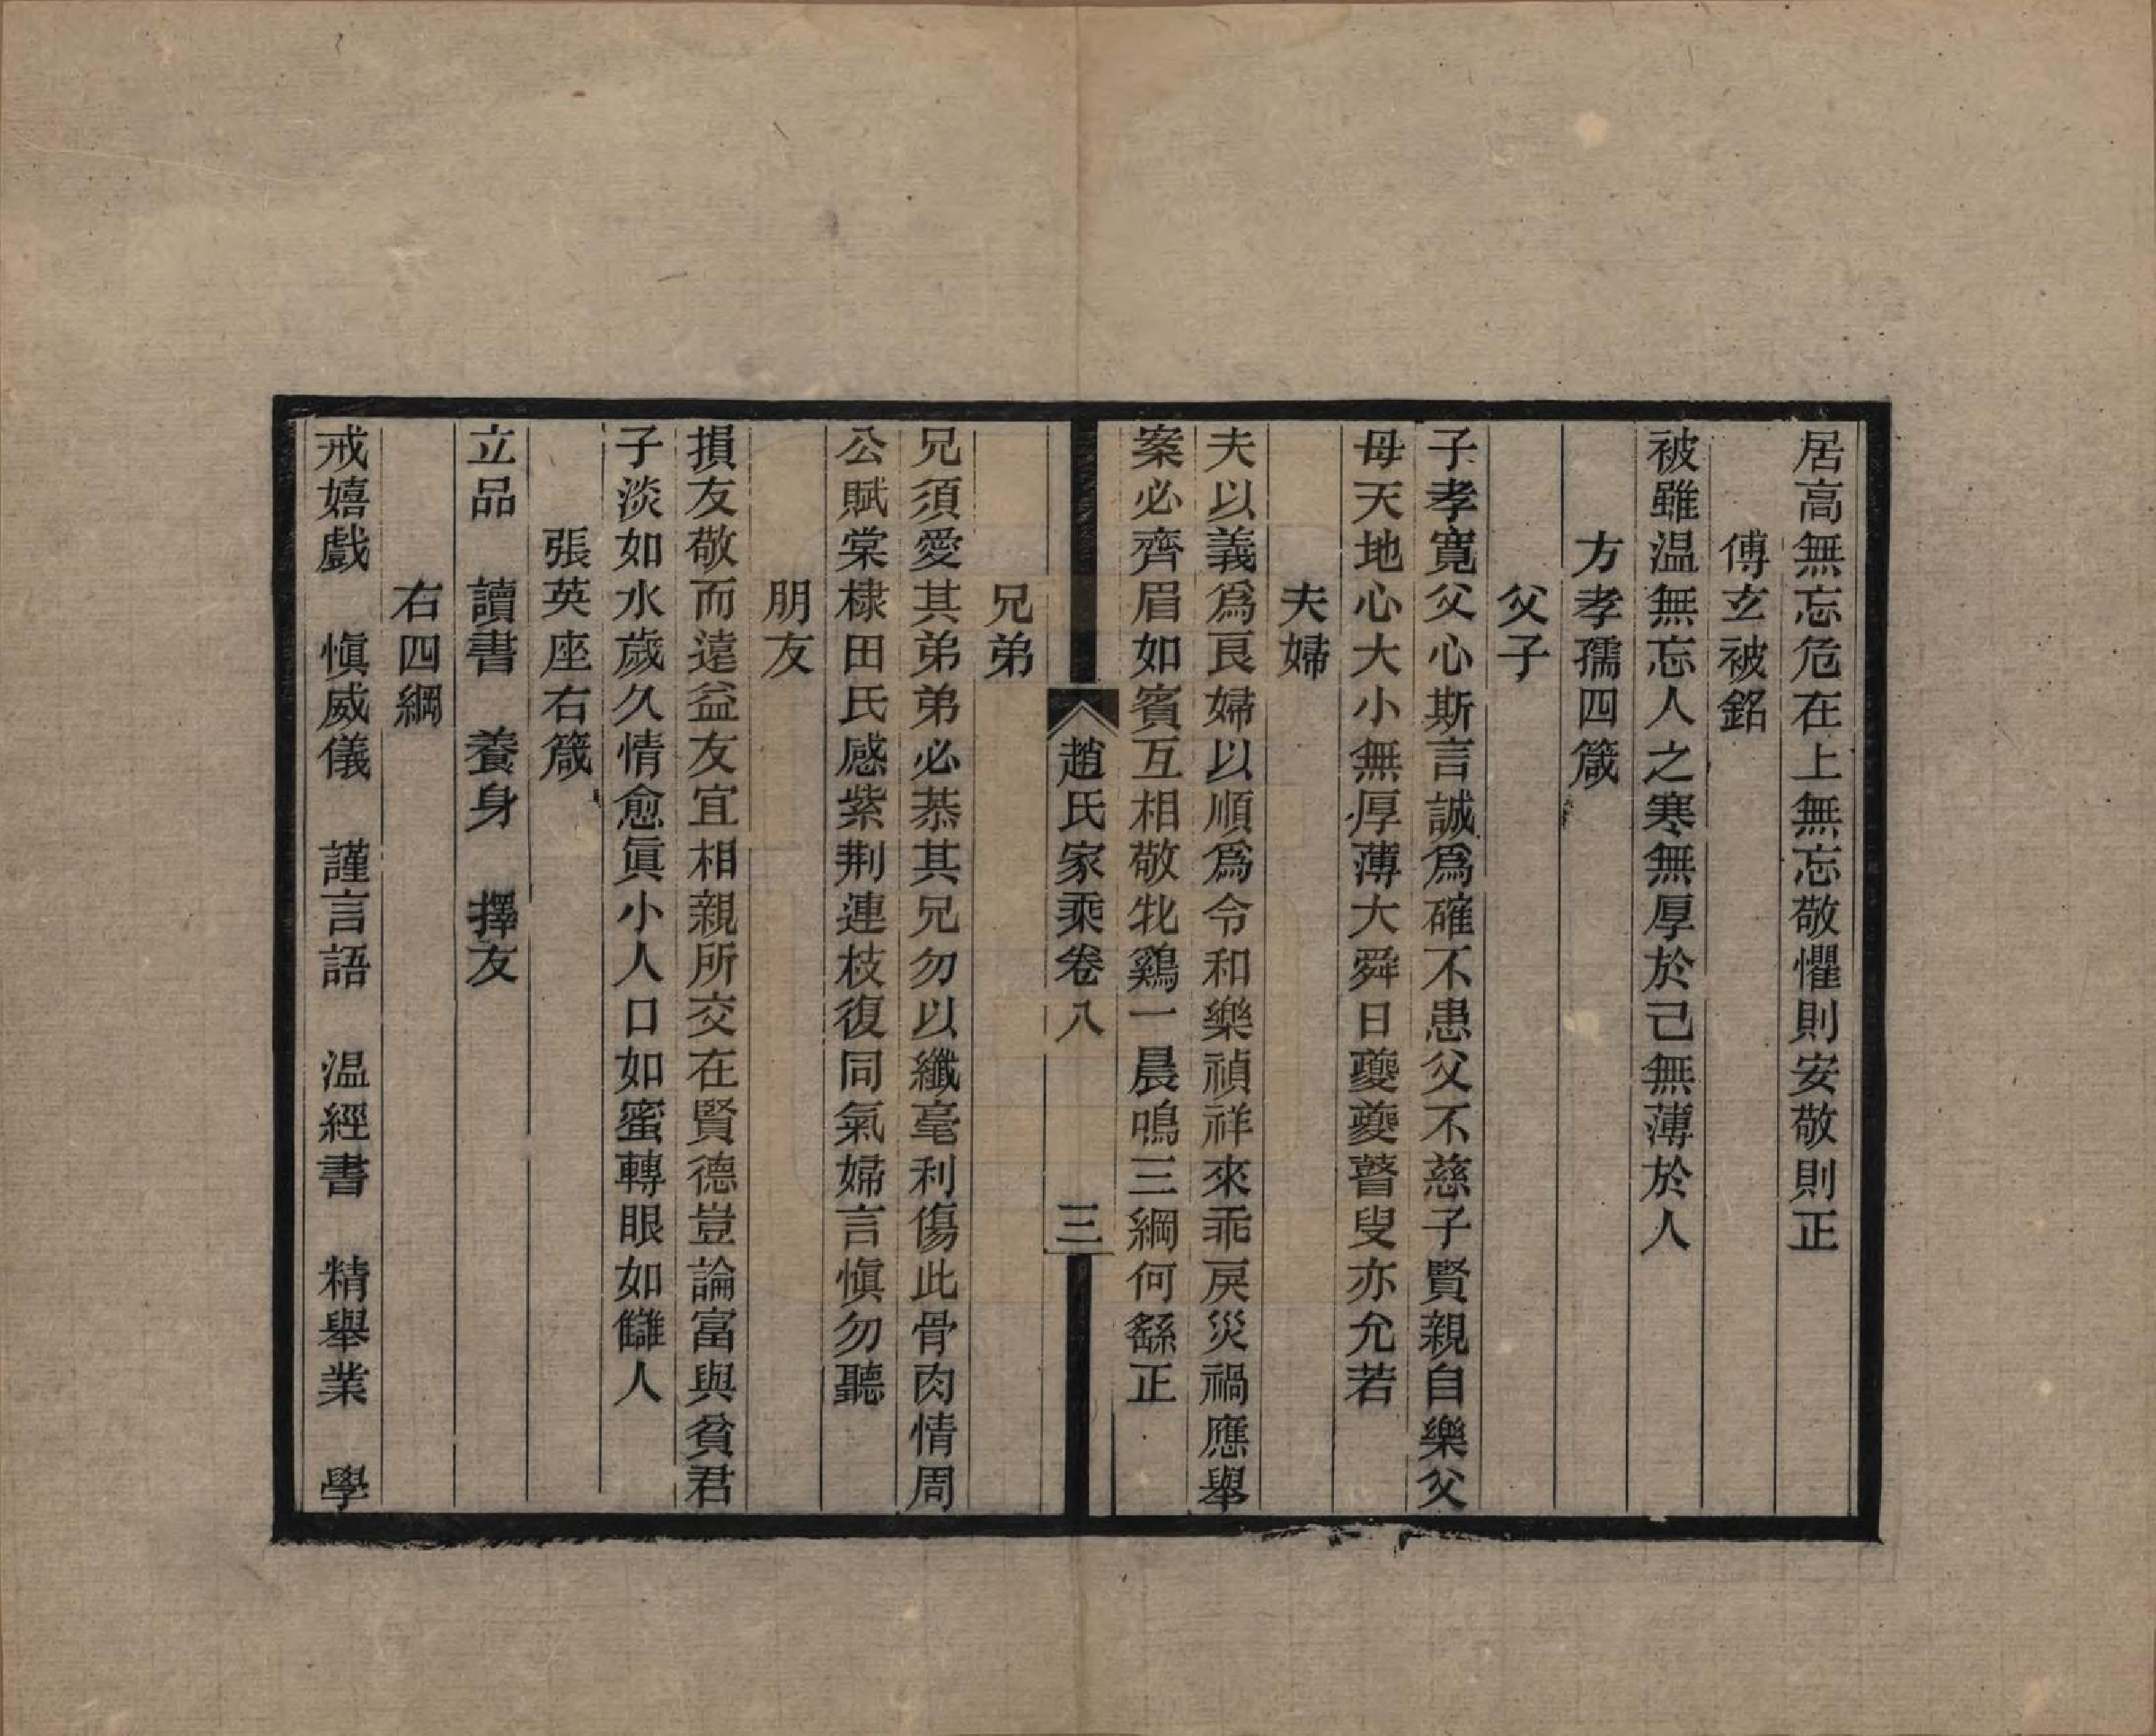 居高無忘危在上無忘敬懼則安敬則正
傅玄被銘
被雖温無忘人之寒無厚於己無薄於人
方孝孺四箴
父子
子孝寬父心斯言誠爲確不患父不慈子賢親自樂父
母天地心大小無厚薄大舜日夔夔瞽叟亦允若
夫婦
夫以義爲良婦以順爲令和樂禎祥來乖戾災禍應舉
案必齊眉如賓互相敬牝鷄一晨鳴三綱何繇正
趙氏家乘卷八
三
兄弟
兄須愛其弟弟必恭其兄勿以纖毫利傷此骨肉情周
公賦棠棣田氏感紫荆連枝復同氣婦言愼勿聽
朋友
損友敬而遠益友宜相親所交在賢德豈論富與貧君
子淡如水歲久情愈眞小人口如蜜轉眼如讎人
張英座右箴
立品　讀書　養身　擇友
右四綱
戒嬉戲　愼威儀　謹言語　温經書　精舉業　學